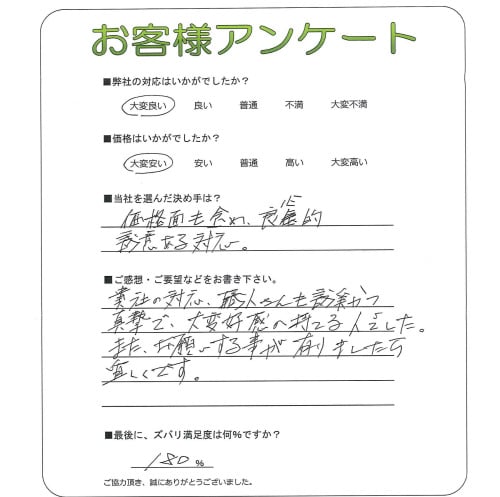 お客様アンケート
■弊社の対応はいかがでしたか?
大変良い 良い 普通 不満 大変不満
■価格はいかがでしたか?
大変安い 安い 普通 高い 大変高い
■当社を選んだ決め手は?
価格面も含め、良心的
誠意ある対応。
■ご感想・ご要望などをお書き下さい。
業社の対応、職人さんも誠実かつ
真摯で、大変好感の持てる人でした。
また、お願いする事が有りましたら
宜しくです。
■最後に、ズバリ満足度は何%ですか?
180 %
ご協力頂き、誠にありがとうございました。